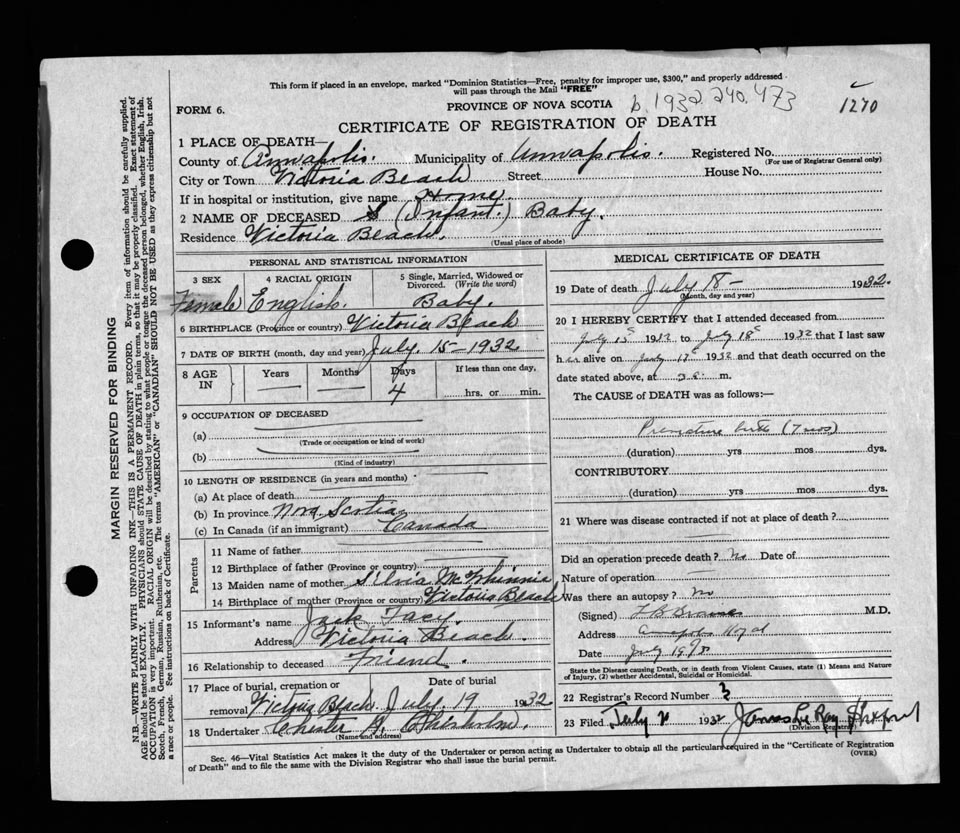 This form if placed in an envelope, marked "Dominion Statistics—Free, penalty for improper use, $300," and properly addressed
will pass through the Mail "FREE"
FORM 6.
PROVINCE OF NOVA SCOTIA
b. 1932. 240. 473
1270
CERTIFICATE OF REGISTRATION OF DEATH
1 PLACE OF DEATH—
County of Annapolis. Municipality of Annapolis. Registered No.
(For use of Registrar General only)
City or Town Victoria Beach Street House No.
If in hospital or institution, give name Home
2 NAME OF DECEASED (Infant.) Baby.
Residence Victoria Beach.
(Usual place of abode)
PERSONAL AND STATISTICAL INFORMATION
3 SEX Female
4 RACIAL ORIGIN English.
5 Single, Married, Widowed or Divorced. (Write the word) Baby.
6 BIRTHPLACE (Province or country) Victoria Beach
7 DATE OF BIRTH (month, day and year) July 15—1932
8 AGE IN Years Months Days 4 If less than one day, hrs. or min.
9 OCCUPATION OF DECEASED
(a)
(Trade or occupation or kind of work)
(b)
(Kind of industry)
10 LENGTH OF RESIDENCE (in years and months)
(a) At place of death
(b) In province Nova Scotia
(c) In Canada (if an immigrant) Canada
Parents
11 Name of father
12 Birthplace of father (Province or country)
13 Maiden name of mother Silvia McWhinnie
14 Birthplace of mother (Province or country) Victoria Beach
15 Informant's name Jack
Address Victoria Beach.
16 Relationship to deceased Friend.
17 Place of burial, cremation or removal Date of burial
Victoria Beach. July 19 1932
18 Undertaker Chester
(Name and address)
MEDICAL CERTIFICATE OF DEATH
19 Date of death July 18— 1932.
(Month, day and year)
20 I HEREBY CERTIFY that I attended deceased from
July 15 1932 to July 18 1932 that I last saw
her alive on July 17 1932 and that death occurred on the
date stated above, at m.
The CAUSE of DEATH was as follows:—
Premature birth
(duration) yrs mos dys.
CONTRIBUTORY
(duration) yrs mos dys.
21 Where was disease contracted if not at place of death?
Did an operation precede death? No Date of
Nature of operation
Was there an autopsy? No
(Signed) M.D.
Address Annapolis Royal
Date July
State the Disease causing Death, or in death from Violent Causes, state (1) Means and Nature
of Injury, (2) whether Accidental, Suicidal or Homicidal.
22 Registrar's Record Number 3
23 Filed July 1932 James Le Ray
(Division Registrar)
Sec. 46—Vital Statistics Act makes it the duty of the Undertaker or person acting as Undertaker to obtain all the particulars required in the "Certificate of Registration
of Death" and to file the same with the Division Registrar who shall issue the burial permit.
(OVER)
MARGIN RESERVED FOR BINDING
N.B.—WRITE PLAINLY WITH UNFADING INK—THIS IS A PERMANENT RECORD. Every item of information should be carefully supplied.
AGE should be stated EXACTLY. PHYSICIANS should STATE CAUSE OF DEATH in plain terms, so that it may be properly classified. Exact statement of
OCCUPATION is very important. RACIAL ORIGIN will be described by stating to what people or tongue the deceased person belonged, whether English, Irish,
Scotch, French, German, Russian, Ruthenian, etc. The terms "AMERICAN" or "CANADIAN" SHOULD NOT BE USED as they express citizenship but not
a race or people. See instructions on back of Certificate.